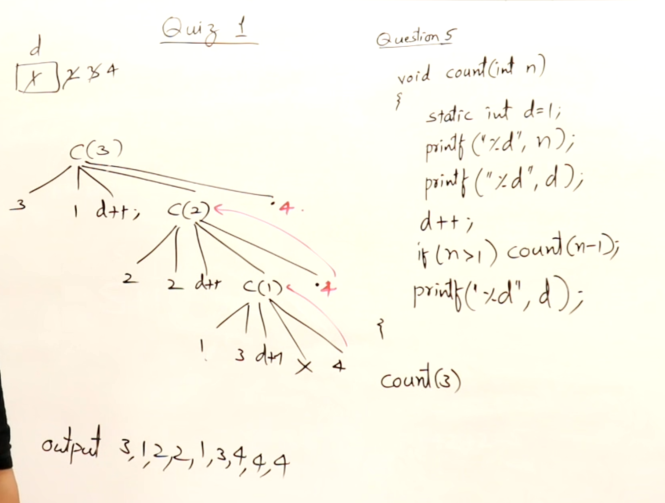 Quiz 1
d
1 2 3 4
C(3)
3 1 d++; C(2) 4
2 2 d++ C(1) 4
1 3 d++ X 4
output 3,1,2,2,1,3,4,4,4
Question 5
void count(int n)
{
static int d=1;
printf("%d", n);
printf("%d", d);
d++;
if(n>1) count(n-1);
printf("%d", d);
}
count(3)